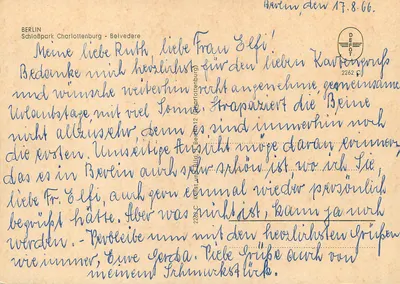 Berlin, den 17.8.66.
BERLIN
Schloßpark Charlottenburg - Belvedere
Meine liebe Ruth, liebe Frau Elfi!
Bedanke mich herzlichst für den lieben Kartengruß
und wünsche weiterhin recht angenehme, gemeinsame
Urlaubstage, mit viel Sonne. Strapaziert die Beine
nicht allzusehr, denn es sind immerhin noch
die ersten. Umseitige Ansicht möge daran erinnern,
das es in Berlin auch sehr schön ist wo ich Sie,
liebe Fr. Elfi, auch gern einmal wieder persönlich
begrüßt hätte. Aber was nicht ist, kann ja noch
werden. - Verbleibe nun mit den herzlichsten Grüßen
wie immer, Eure Gerda. Liebe Grüße auch von
meinem Schmuckstück.